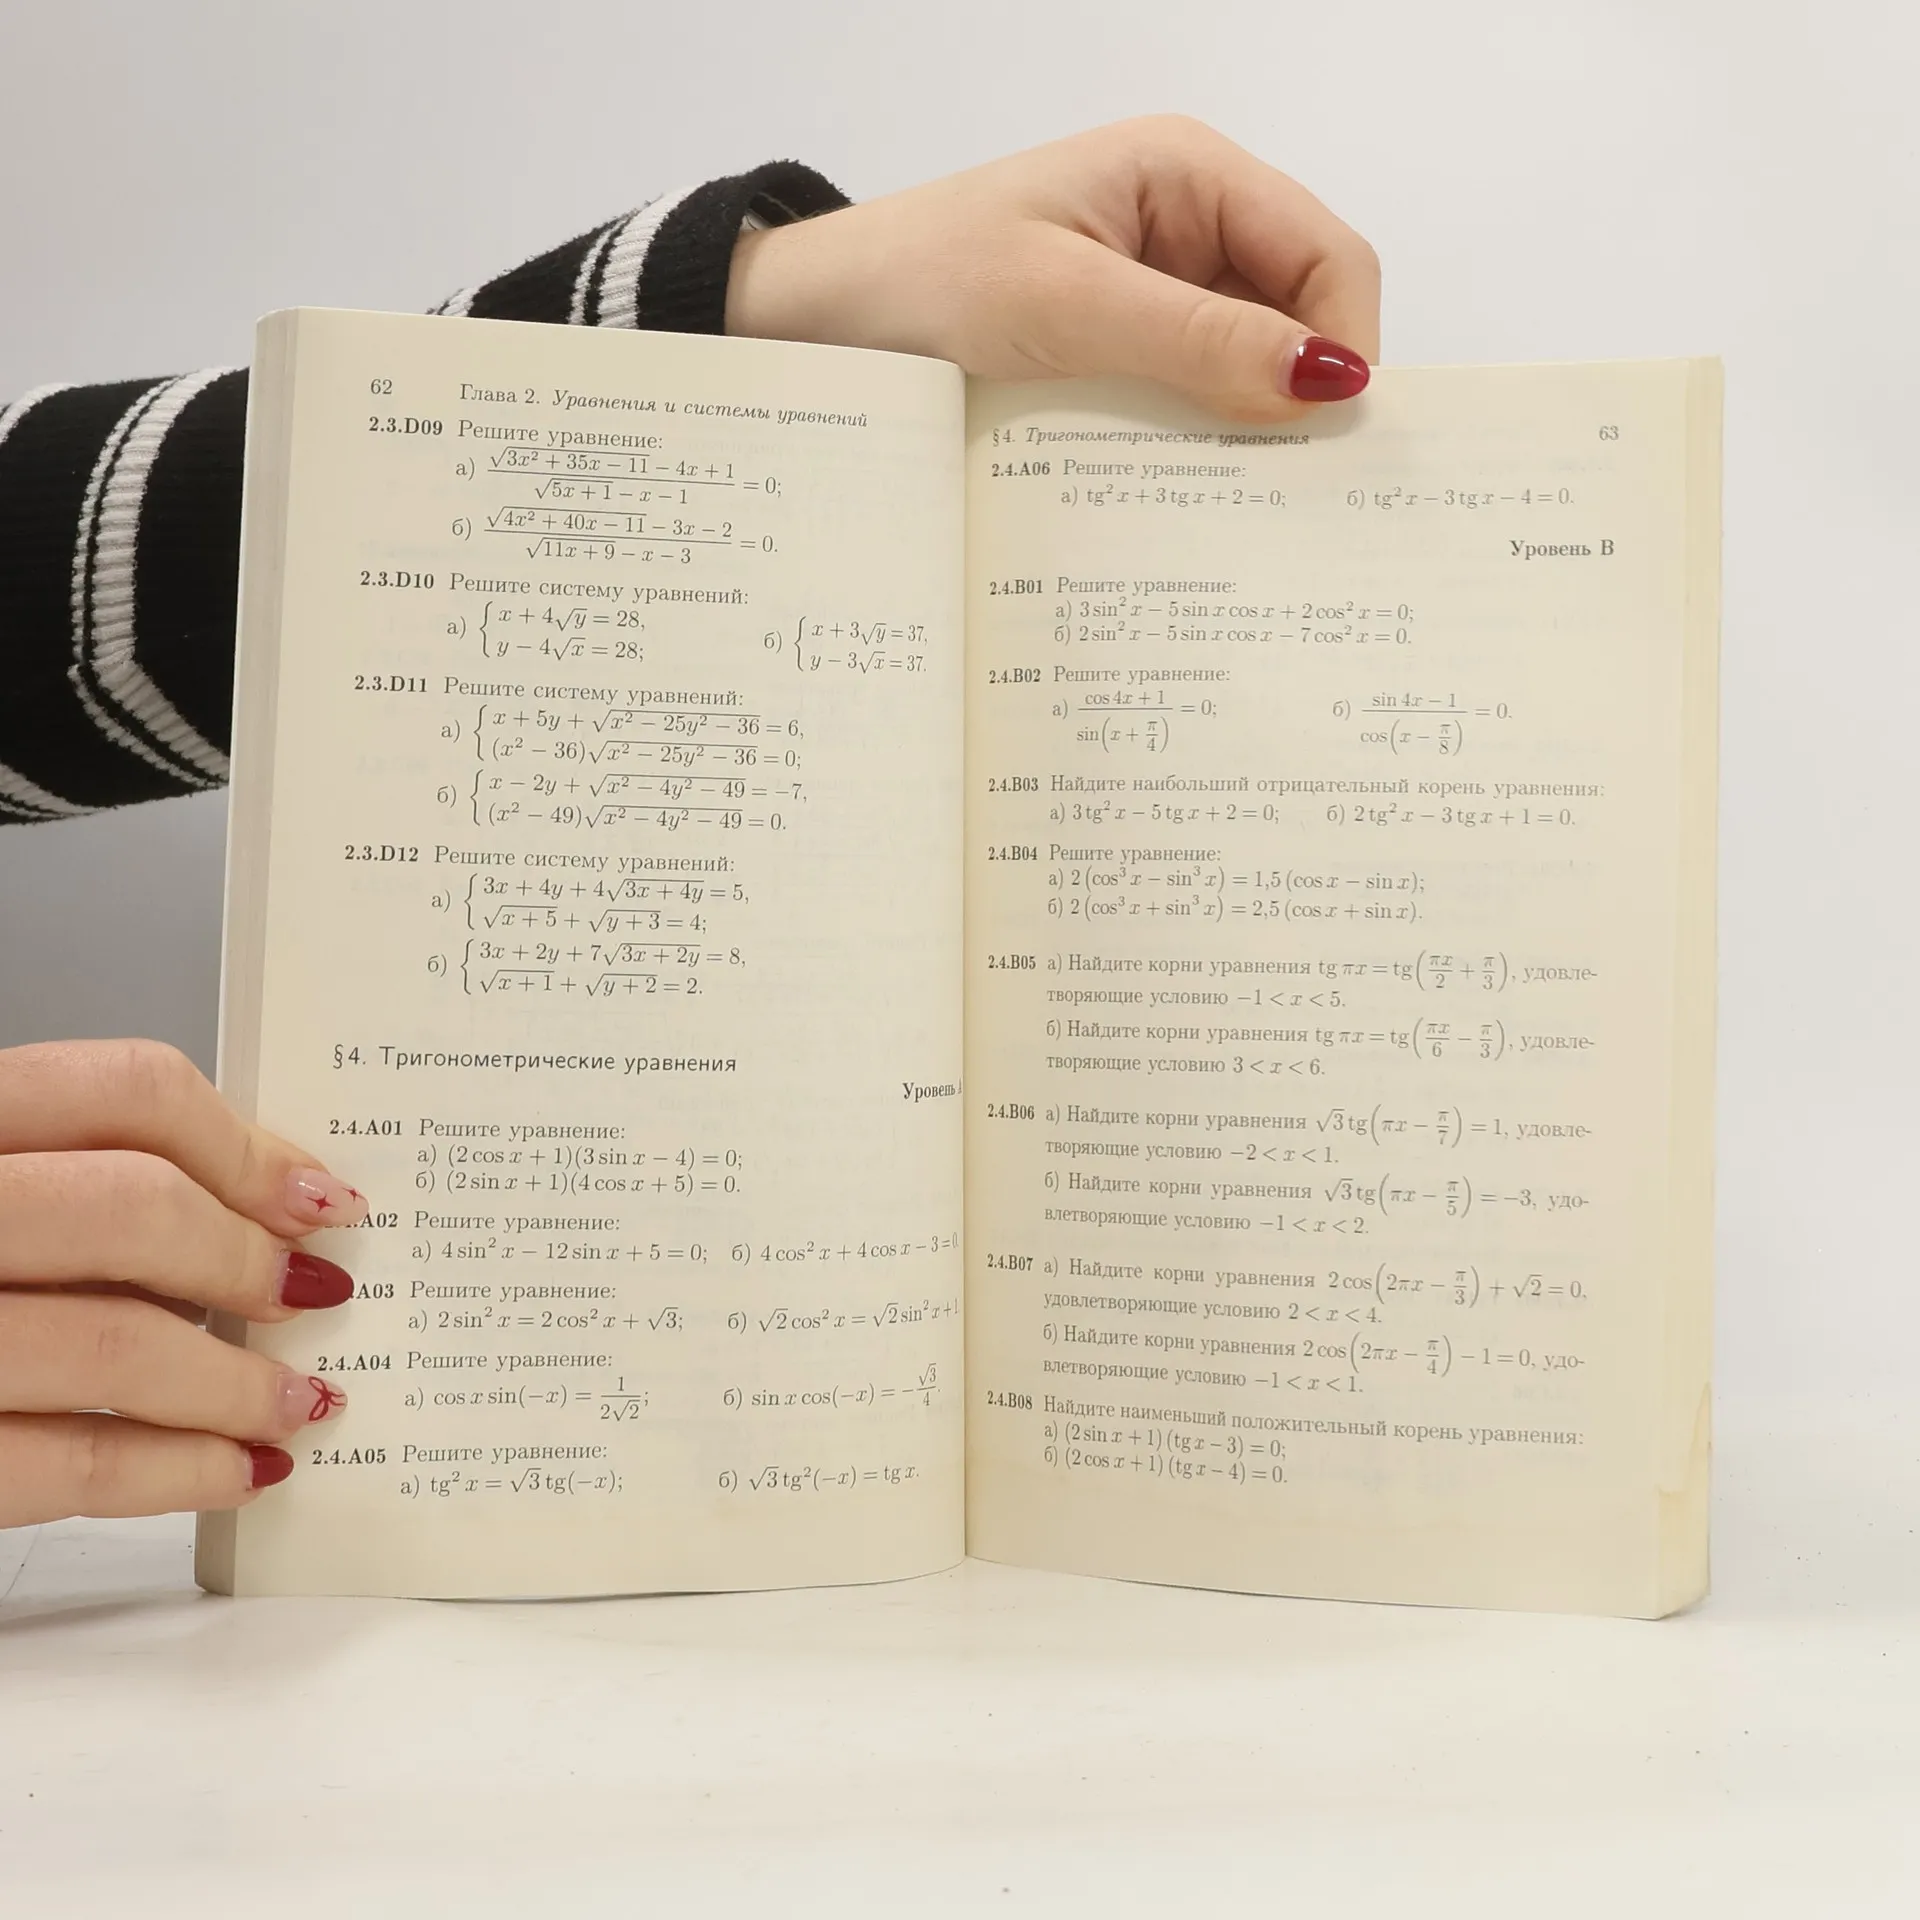 62 Глава 2. Уравнения и системы уравнений
2.3.D09 Решите уравнение:
а) (√(3x² + 35x − 11) − 4x + 1)/(√(5x + 1) − x − 1) = 0;
б) (√(4x² + 40x − 11) − 3x − 2)/(√(11x + 9) − x − 3) = 0.
2.3.D10 Решите систему уравнений:
а) { x + 4√y = 28, б) { x + 3√y = 37,
y − 4√x = 28; y − 3√x = 37.
2.3.D11 Решите систему уравнений:
а) { x + 5y + √(x² − 25y² − 36) = 6,
(x² − 36)√(x² − 25y² − 36) = 0;
б) { x − 2y + √(x² − 4y² − 49) = −7,
(x² − 49)√(x² − 4y² − 49) = 0.
2.3.D12 Решите систему уравнений:
а) { 3x + 4y + 4√(3x + 4y) = 5,
√(x + 5) + √(y + 3) = 4;
б) { 3x + 2y + 7√(3x + 2y) = 8,
√(x + 1) + √(y + 2) = 2.
§4. Тригонометрические уравнения
Уровень
2.4.A01 Решите уравнение:
а) (2 cos x + 1)(3 sin x − 4) = 0;
б) (2 sin x + 1)(4 cos x + 5) = 0.
.A02 Решите уравнение:
а) 4 sin² x − 12 sin x + 5 = 0; б) 4 cos² x + 4 cos x − 3 = 0
.A03 Решите уравнение:
а) 2 sin² x = 2 cos² x + √3; б) √2 cos² x = √2 sin² x + 1
2.4.A04 Решите уравнение:
а) cos x sin(−x) = 1/(2√2); б) sin x cos(−x) = −√3/4.
2.4.A05 Решите уравнение:
а) tg² x = √3 tg(−x); б) √3 tg²(−x) = tg x.
§4. Тригонометрические уравнения 63
2.4.A06 Решите уравнение:
а) tg² x + 3 tg x + 2 = 0; б) tg² x − 3 tg x − 4 = 0.
Уровень B
2.4.B01 Решите уравнение:
а) 3 sin² x − 5 sin x cos x + 2 cos² x = 0;
б) 2 sin² x − 5 sin x cos x − 7 cos² x = 0.
2.4.B02 Решите уравнение:
а) (cos 4x + 1)/(sin(x + π/4)) = 0; б) (sin 4x − 1)/(cos(x − π/8)) = 0.
2.4.B03 Найдите наибольший отрицательный корень уравнения:
а) 3 tg² x − 5 tg x + 2 = 0; б) 2 tg² x − 3 tg x + 1 = 0.
2.4.B04 Решите уравнение:
а) 2 (cos³ x − sin³ x) = 1,5 (cos x − sin x);
б) 2 (cos³ x + sin³ x) = 2,5 (cos x + sin x).
2.4.B05 а) Найдите корни уравнения tg πx = tg(πx/2 + π/3), удовле-
творяющие условию −1 < x < 5.
б) Найдите корни уравнения tg πx = tg(πx/6 − π/3), удовле-
творяющие условию 3 < x < 6.
2.4.B06 а) Найдите корни уравнения √3 tg(πx − π/7) = 1, удовле-
творяющие условию −2 < x < 1.
б) Найдите корни уравнения √3 tg(πx − π/5) = −3, удо-
влетворяющие условию −1 < x < 2.
2.4.B07 а) Найдите корни уравнения 2 cos(2πx − π/3) + √2 = 0,
удовлетворяющие условию 2 < x < 4.
б) Найдите корни уравнения 2 cos(2πx − π/4) − 1 = 0, удо-
влетворяющие условию −1 < x < 1.
2.4.B08 Найдите наименьший положительный корень уравнения:
а) (2 sin x + 1) (tg x − 3) = 0;
б) (2 cos x + 1) (tg x − 4) = 0.